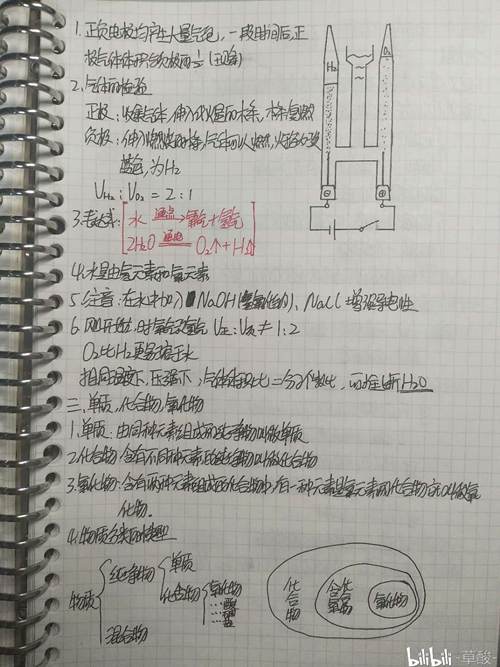 1. 正负电极均产生大量气泡，一段时间后，正
极气体体积约为负极的½ (正确)
2. 气体的检验
正极：收集气体，伸入带火星的木条，木条复燃
负极：伸入燃烧的木条，气体可以燃，火焰为淡
蓝色，为H₂
V_H₂：V_O₂ = 2：1
H₂
O₂
⊖
⊕
3. 表达式
水 通电→ 氢气+氧气
2H₂O 通电 O₂↑+H₂↑
4. 水是由氢元素和氧元素
5. 注意：在水中加入 NaOH(氢氧化钠)、NaCl 增强导电性
6. 刚开始时氧气：氢气 V正：V负≠1：2
O₂比H₂更易溶于水
相同温度下，压强下，气体体积比=分子个数比，可推断H₂O
三. 单质，化合物，氧化物
1. 单质：由同种元素组成的纯净物叫做单质
2. 化合物：含有不同种元素的纯净物叫做化合物
3. 氧化物：含有两种元素组成的化合物中，后一种元素是氧元素的化合物就叫做氧
化物.
4. 物质分类的模型
物质
纯净物
混合物
单质
化合物
氧化物
酸
碱
盐
化合物
含氧化合物
氧化物
bilibili -草酸-